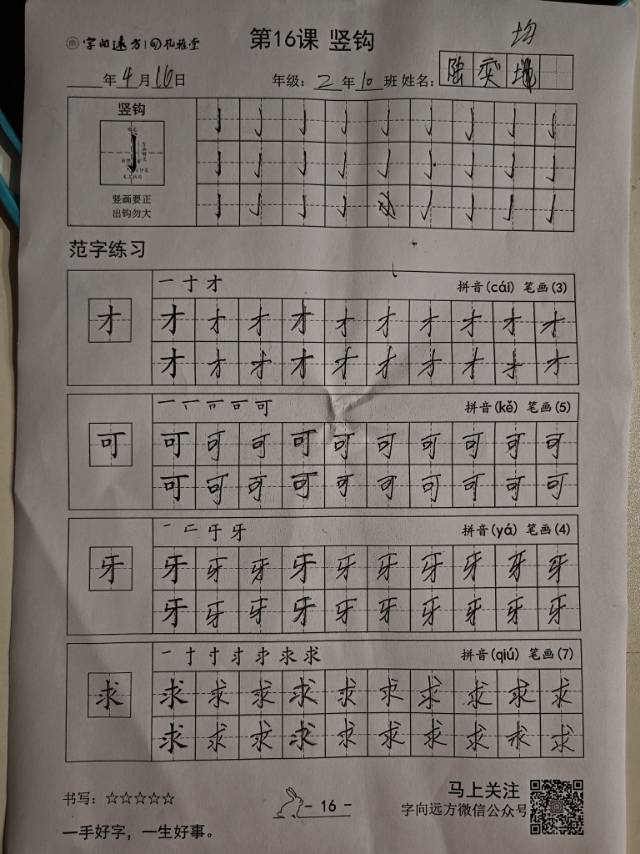 字向远方 第16课 竖钩 均
年4月16日 年级:2年10班 姓名:陆奕
竖钩
竖画要正
出钩勿大
范字练习
一十才 拼音(cái) 笔画(3)
才 才才才才才才才才才才
才才才才才才才才才才
拼音(kě) 笔画(5)
可 可可可可可可可可可可
可可可可可可可可可可
拼音(yá) 笔画(4)
牙 牙牙牙牙牙牙牙牙牙牙
牙牙牙牙牙牙牙牙牙牙
拼音(qiú) 笔画(7)
求 求求求求求求求求求求
求求求求求求求求求求
书写:☆☆☆☆☆ - 16 - 马上关注
字向远方微信公众号
一手好字,一生好事。